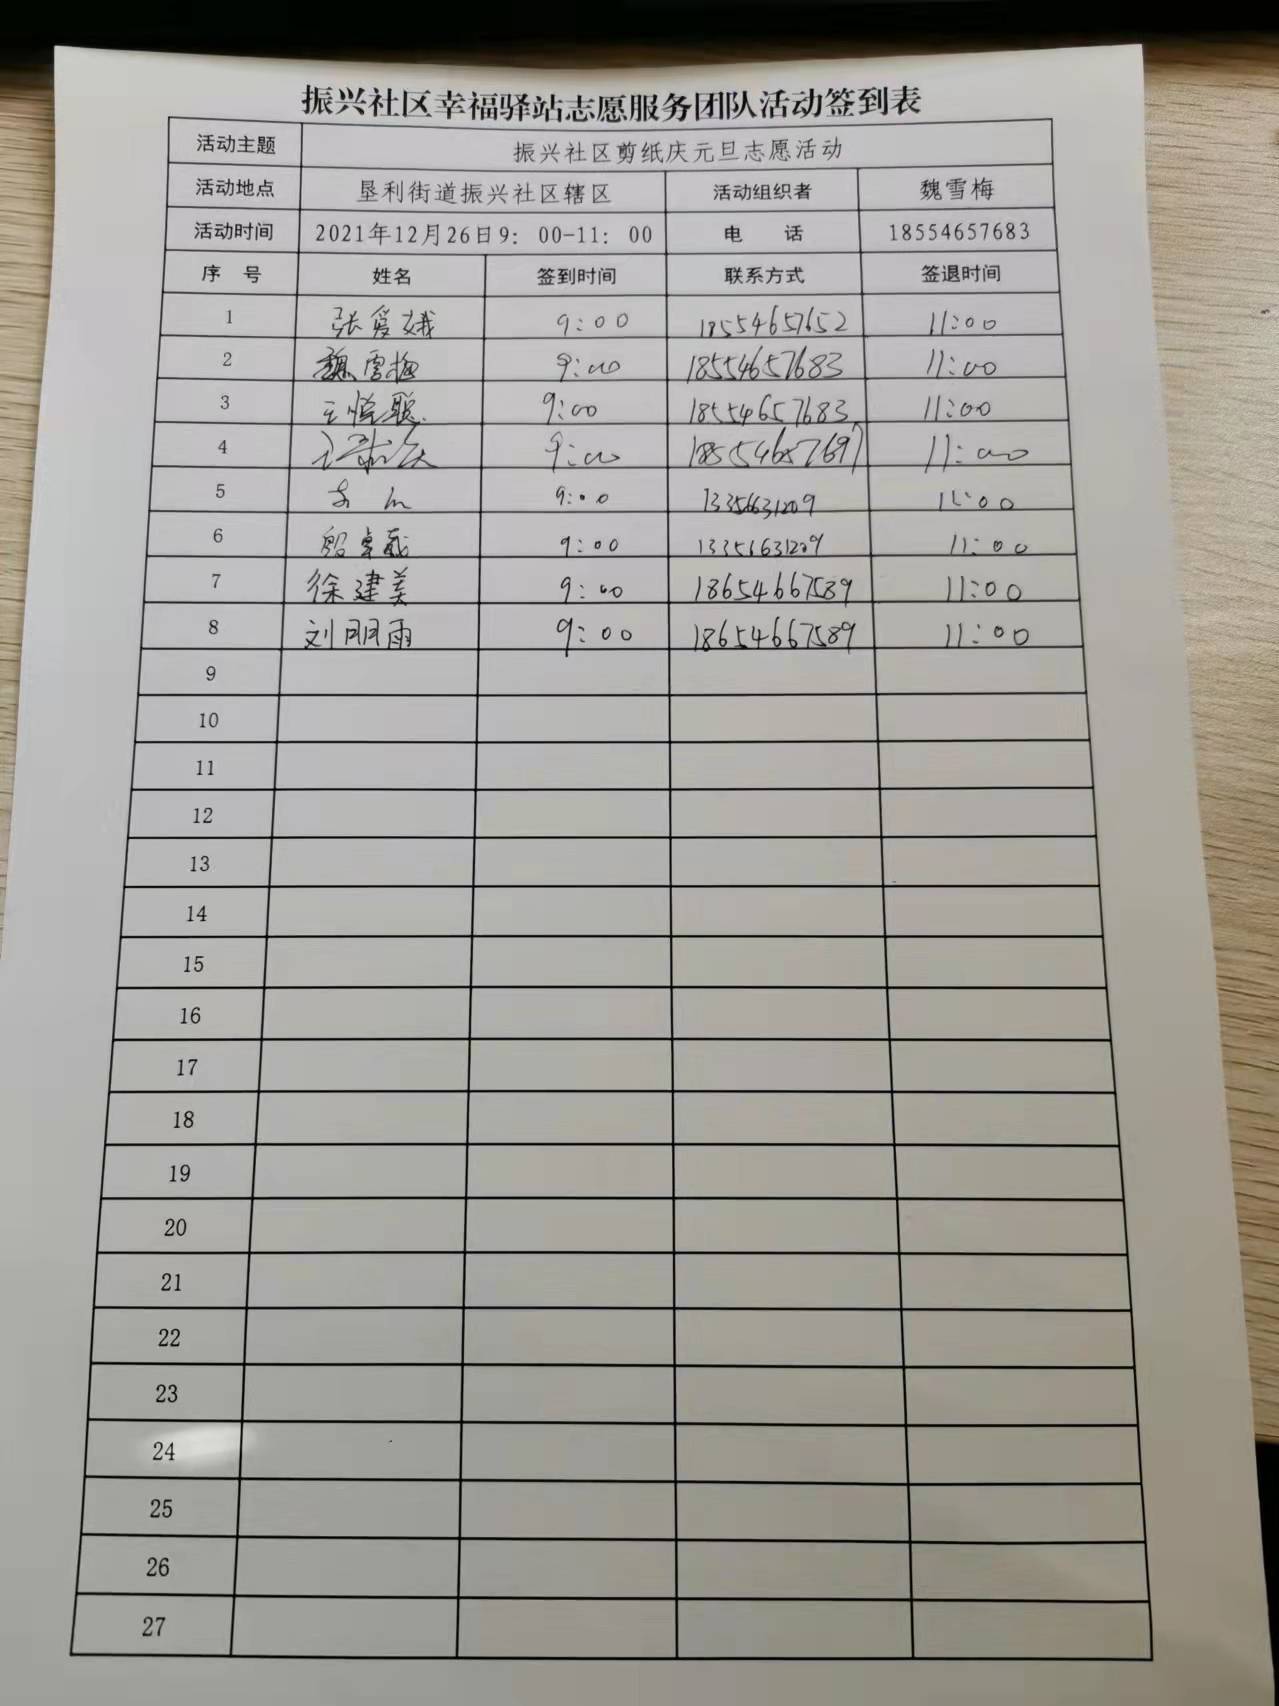 振兴社区幸福驿站志愿服务团队活动签到表
活动主题 振兴社区剪纸庆元旦志愿活动
活动地点 垦利街道振兴社区辖区 活动组织者 魏雪梅
活动时间 2021年12月26日9：00-11：00 电 话 18554657683
序 号 姓名 签到时间 联系方式 签退时间
1 张爱娥 9:00 18554657652 11:00
2 魏雪梅 9:00 18554657683 11:00
3 王悦聪 9:00 18554657683 11:00
4 9:00 18554657697 11:00
5 9:00 13356631209 11:00
6 殷卓 9:00 13356631209 11:00
7 徐建美 9:00 18654667589 11:00
8 刘朋雨 9:00 18654667589 11:00
9
10
11
12
13
14
15
16
17
18
19
20
21
22
23
24
25
26
27